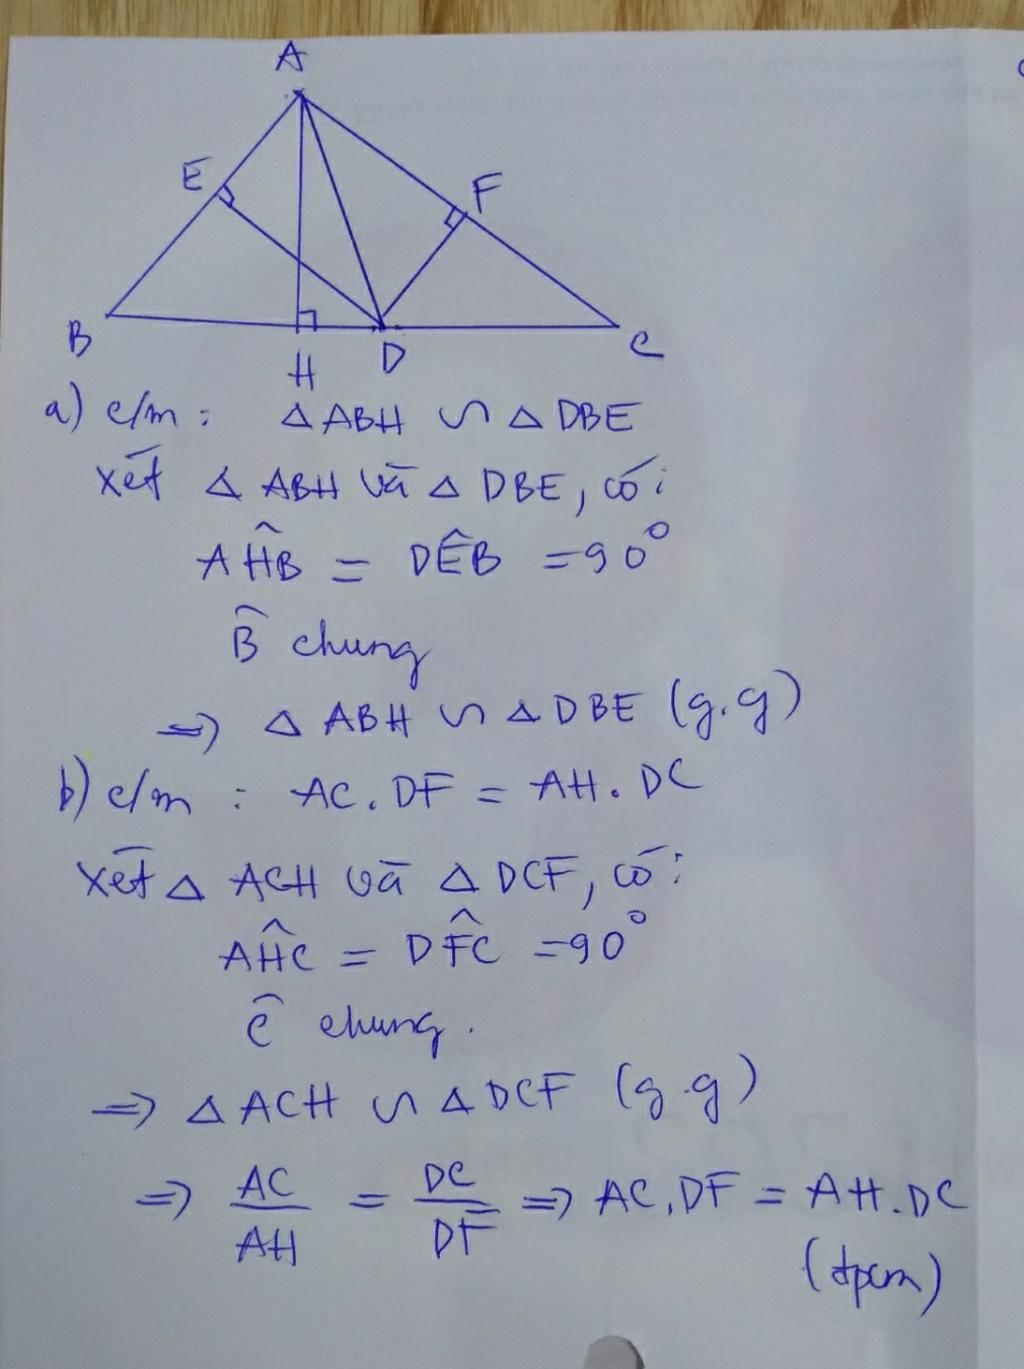 A
E
F
B
H
D
C
a) c/m : △ ABH ∽ △ DBE
Xét △ ABH và △ DBE, có :
AĤB = DÊB = 90°
B̂ chung
=> △ ABH ∽ △ DBE (g.g)
b) c/m : AC . DF = AH . DC
Xét △ ACH và △ DCF, có :
AĤC = DF̂C = 90°
Ĉ chung .
=> △ ACH ∽ △ DCF (g.g)
=> AC/AH = DC/DF => AC . DF = AH . DC
(đpcm)